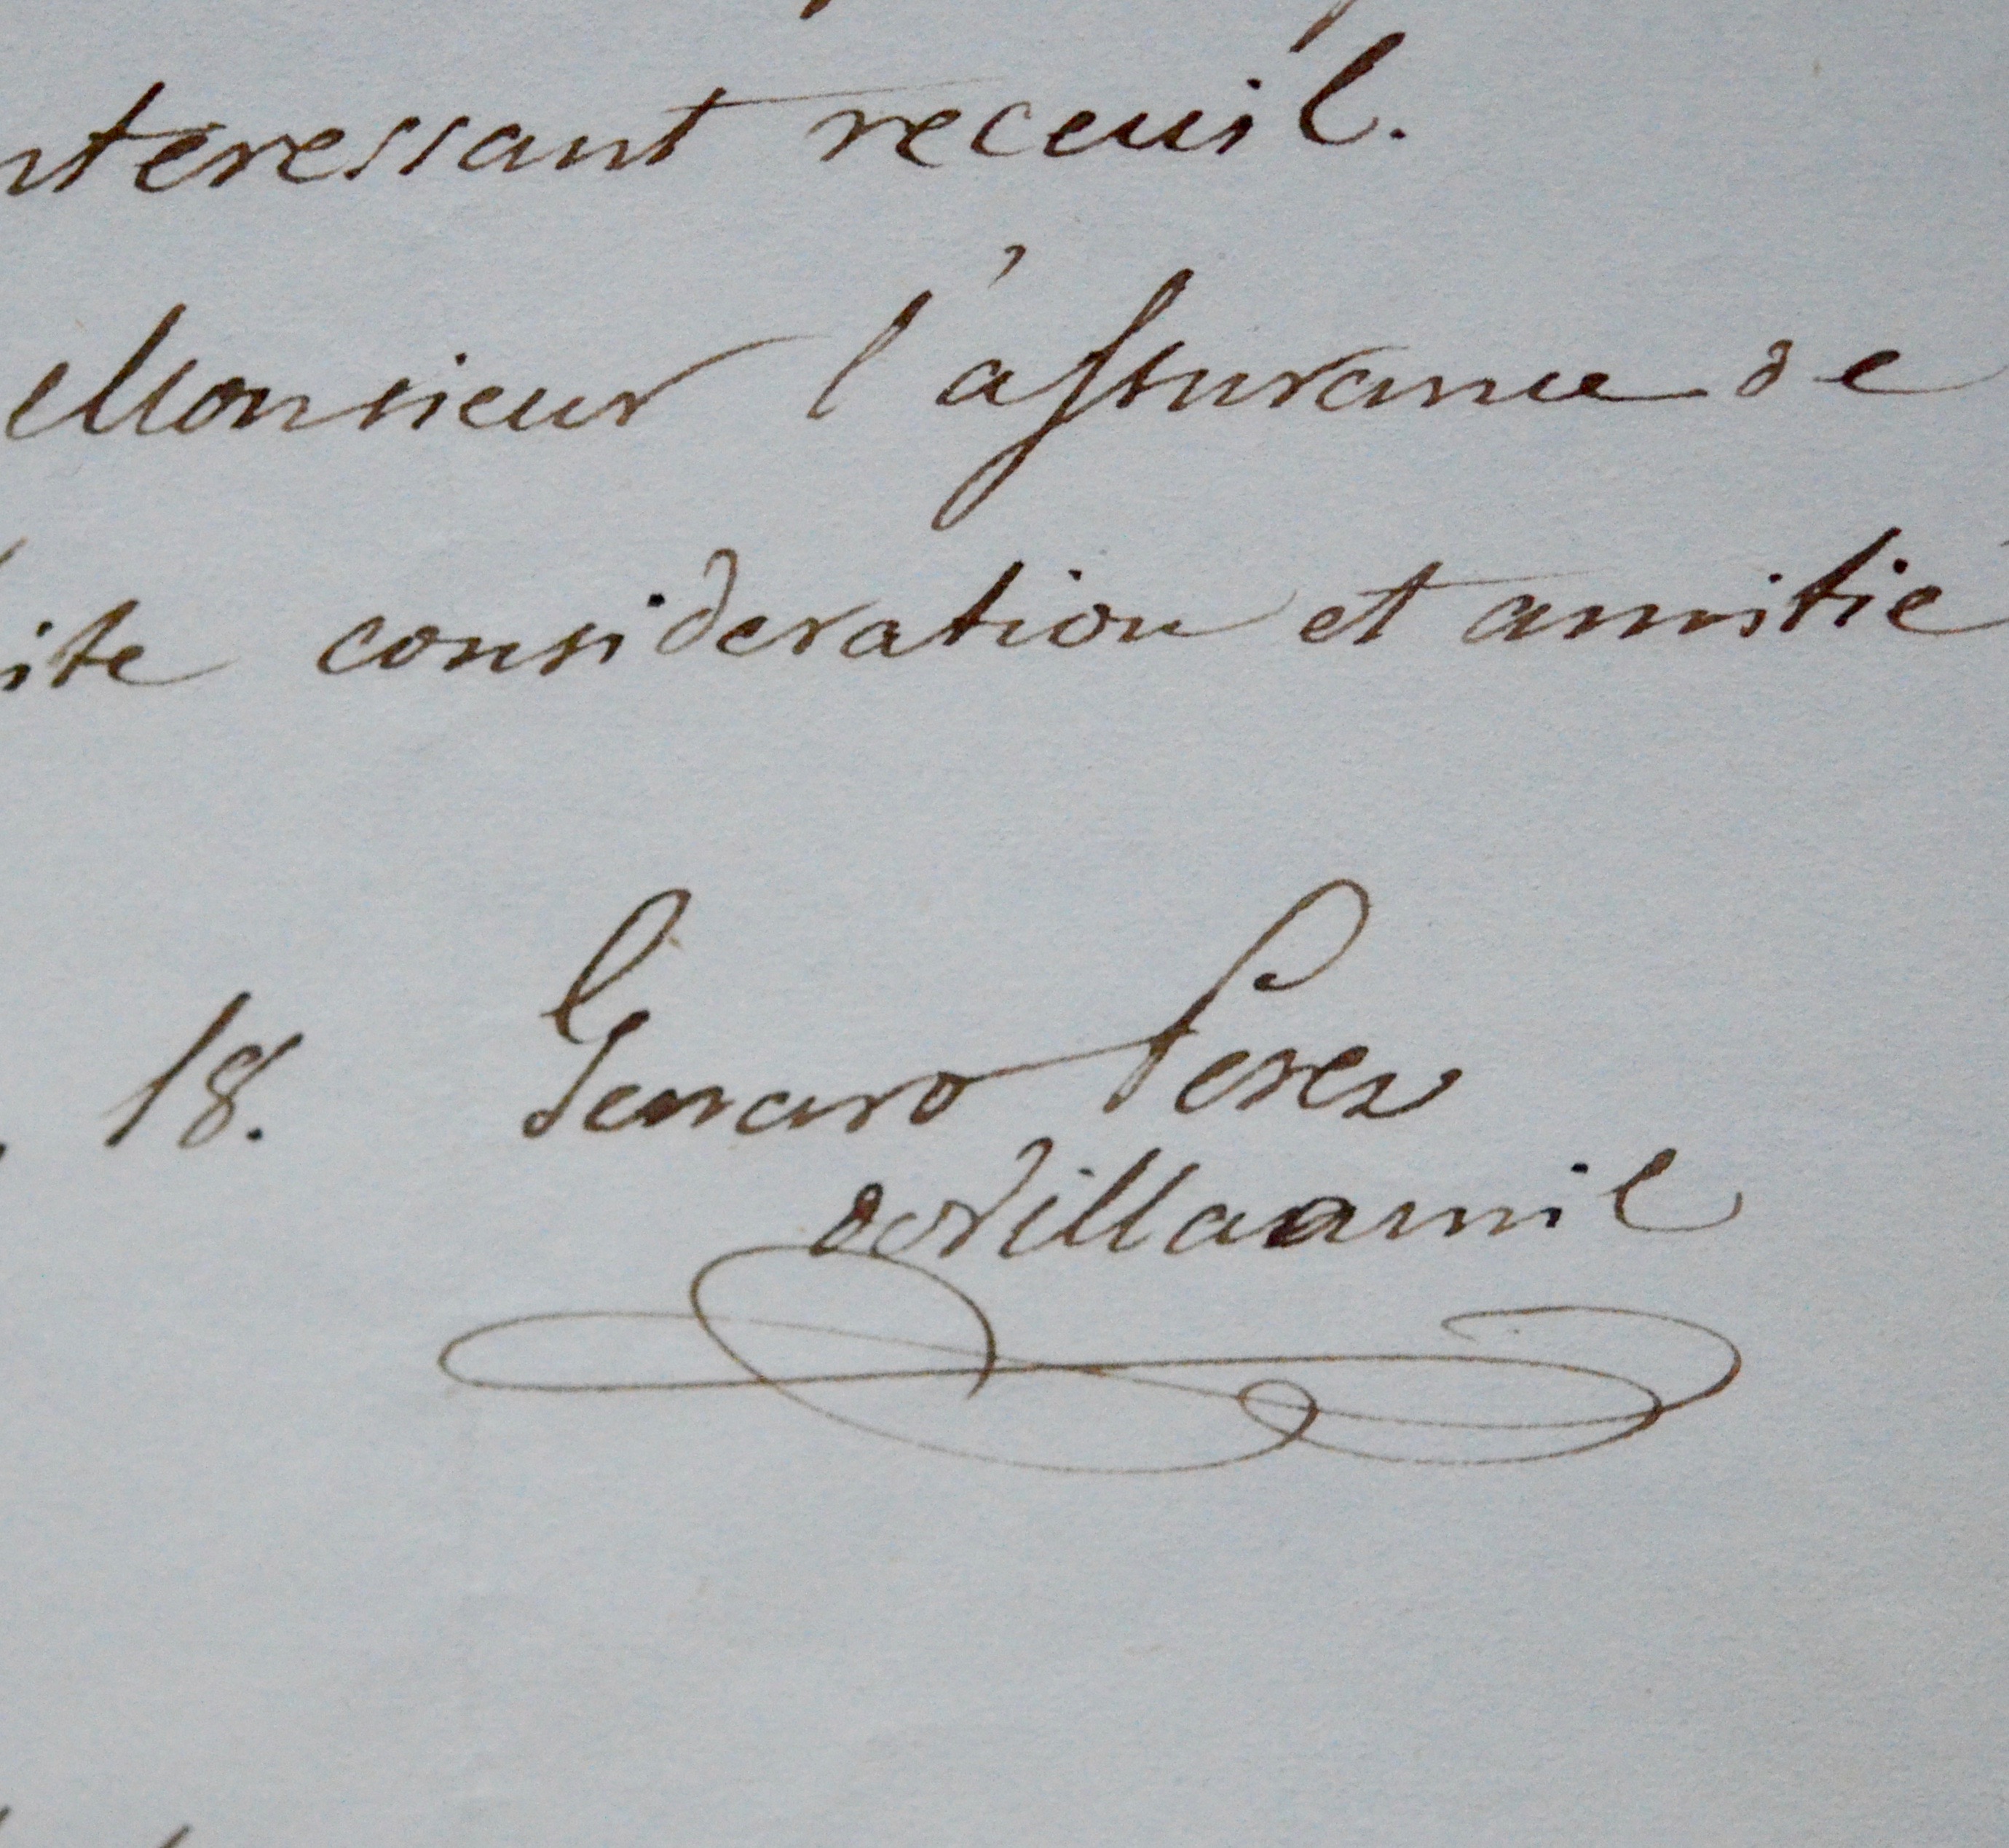 nteressant receuil.
Monsieur l'assurance de
ite consideration et amitié
18. Genaro Perez
de Villaamil